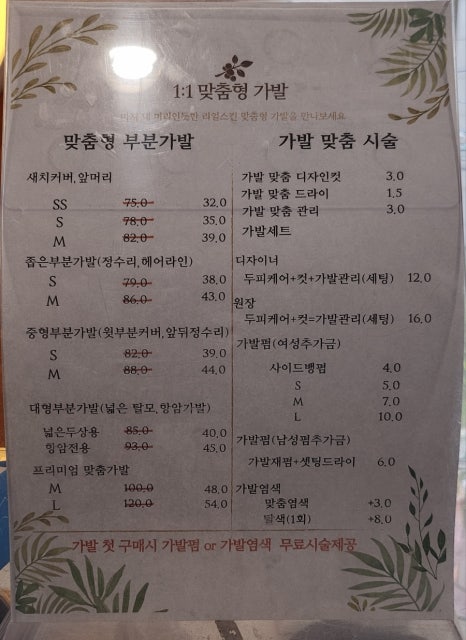 1:1 맞춤형 가발
마치 내 머리인듯한 리얼스킨 맞춤형 가발을 만나보세요
맞춤형 부분가발
새치커버,앞머리
SS 75.0 32.0
S 78.0 35.0
M 82.0 39.0
좁은부분가발(정수리,헤어라인)
S 79.0 38.0
M 86.0 43.0
중형부분가발(윗부분커버,앞뒤정수리)
S 82.0 39.0
M 88.0 44.0
대형부분가발(넓은 탈모,항암가발)
넓은두상용 85.0 40.0
항암전용 93.0 45.0
프리미엄 맞춤가발
M 100.0 48.0
L 120.0 54.0
가발 맞춤 시술
가발 맞춤 디자인컷 3.0
가발 맞춤 드라이 1.5
가발 맞춤 관리 3.0
가발세트
디자이너
두피케어+컷+가발관리(세팅) 12.0
원장
두피케어+컷=가발관리(세팅) 16.0
가발펌(여성추가금)
사이드뱅펌 4.0
S 5.0
M 7.0
L 10.0
가발펌(남성펌추가금)
가발재펌+셋팅드라이 6.0
가발염색
맞춤염색 +3.0
탈색(1회) +8.0
가발 첫 구매시 가발펌 or 가발염색 무료시술제공